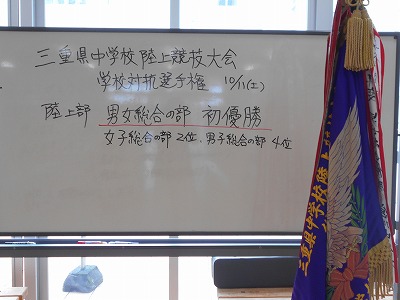 三重県中学校陸上競技大会
学校対抗選手権 10/11(土)
陸上部 男女総合の部 初優勝
女子総合の部 2位、男子総合の部 4位
三重県中学校陸上